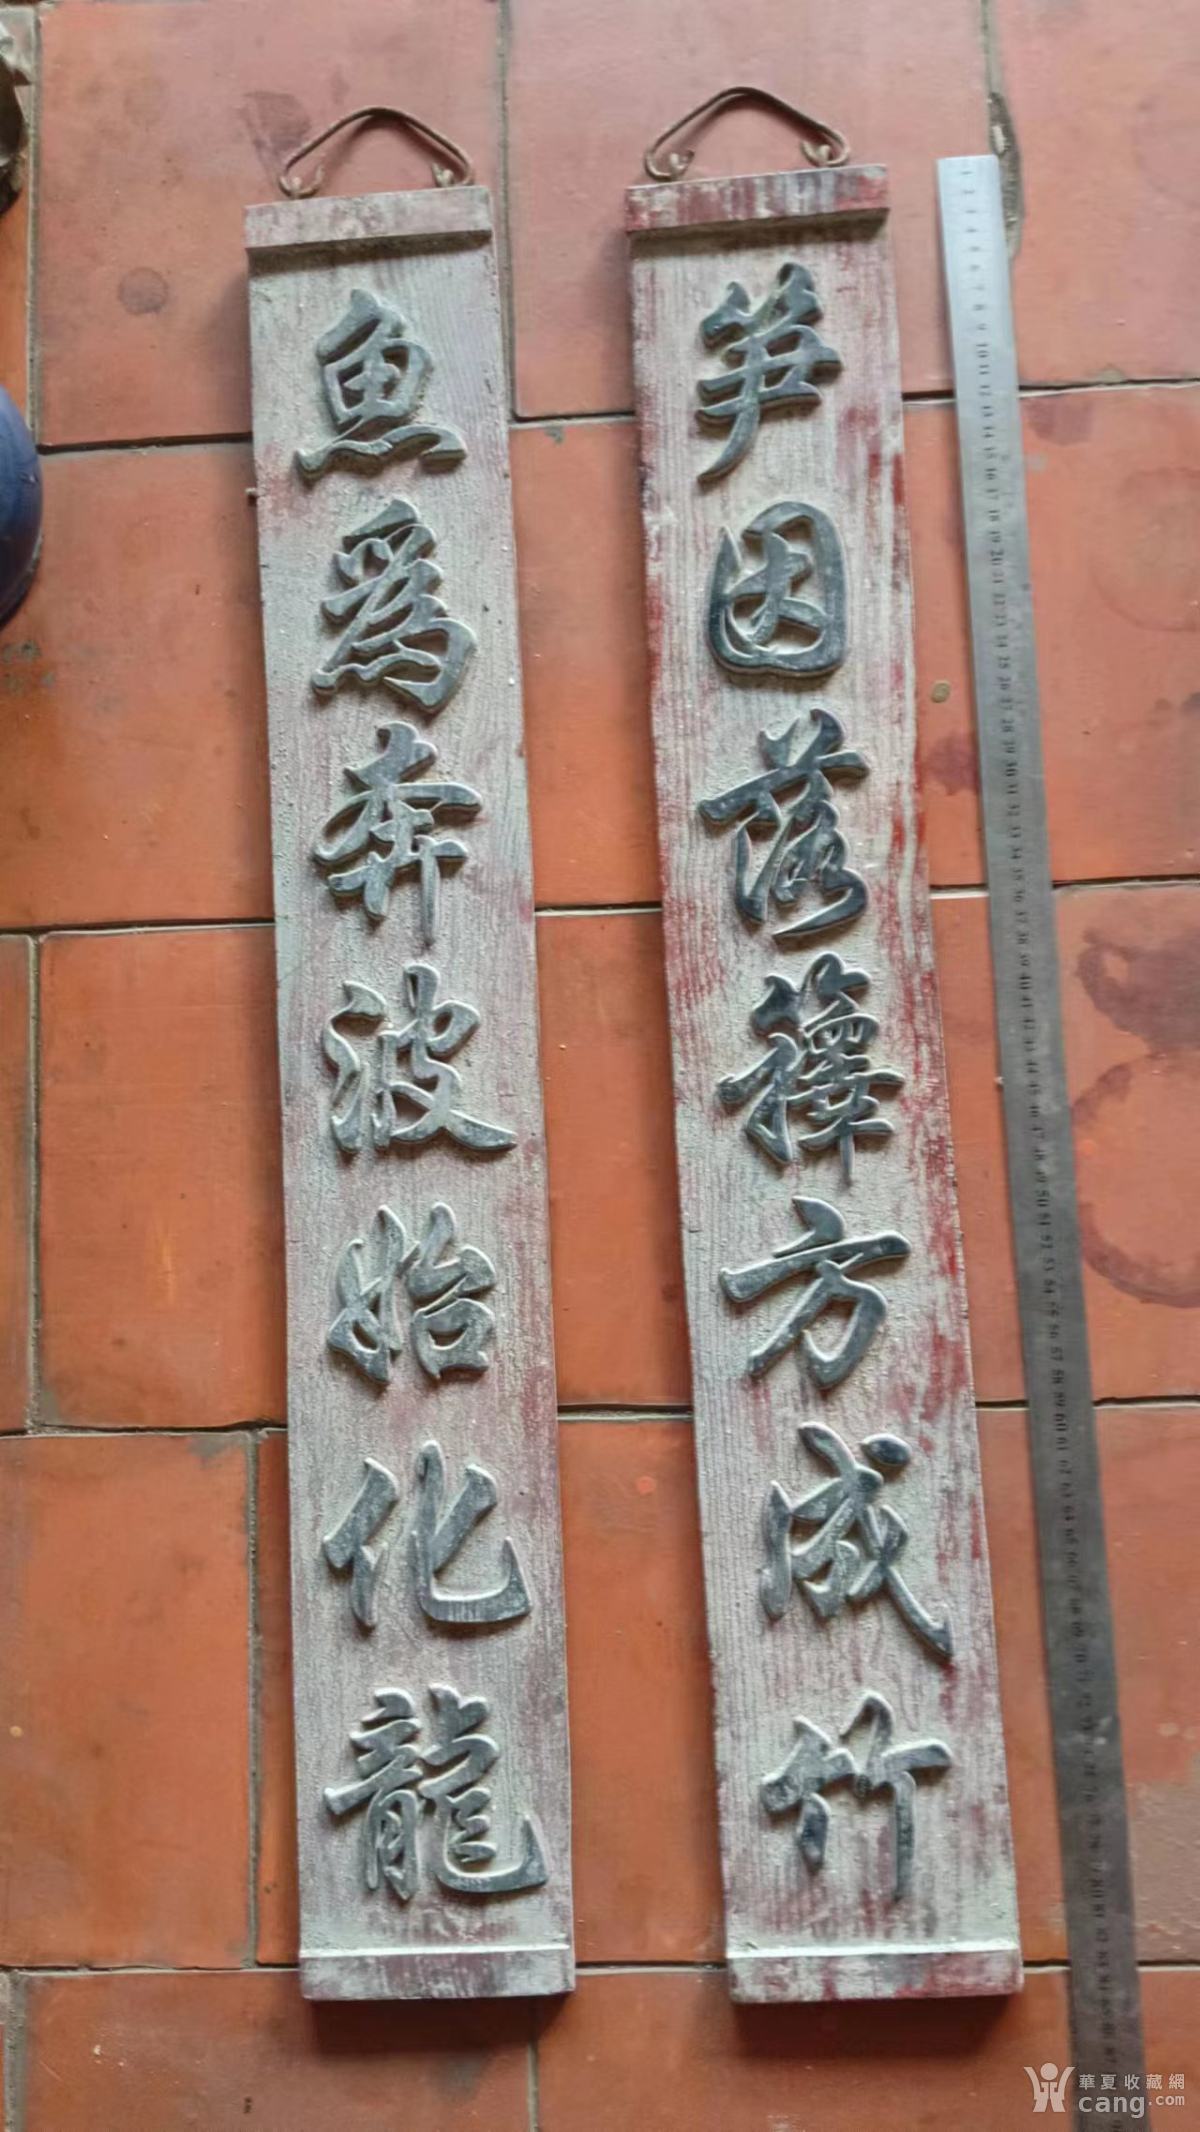 笋因落籜方成竹
魚爲奔波始化龍
華夏收藏網
cang.com